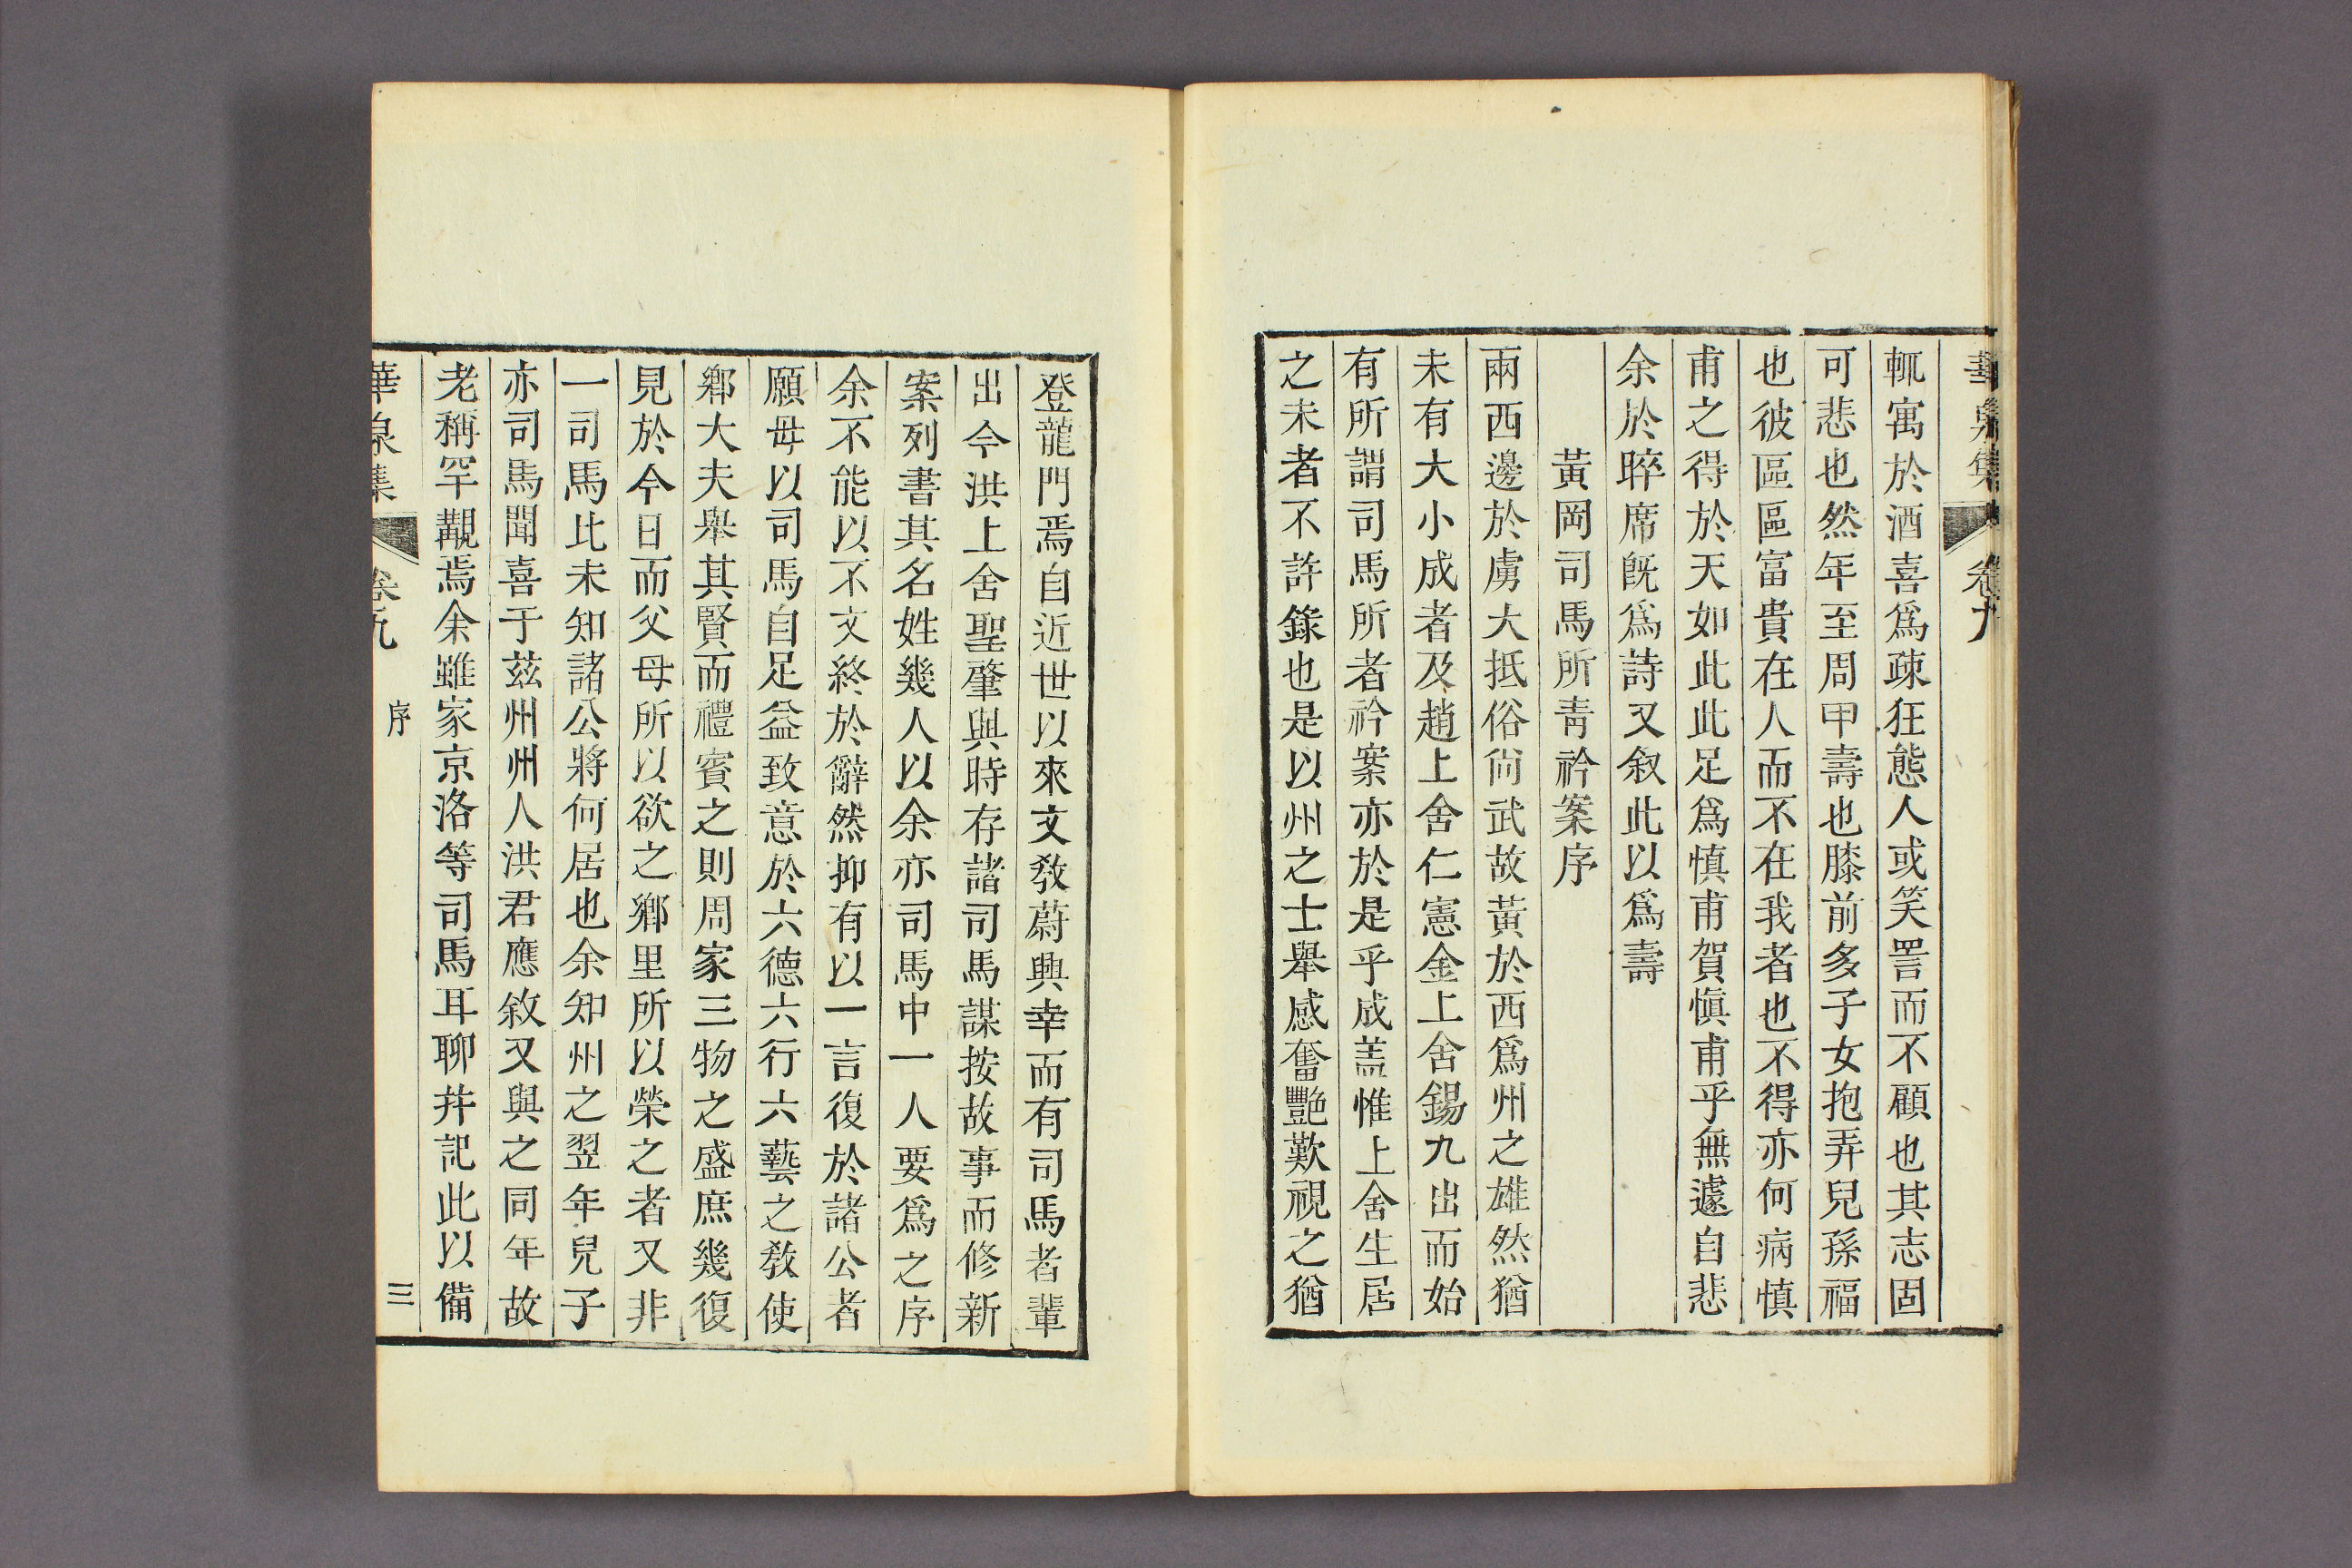 華泉集 卷九
輒寓於酒喜爲疎狂態人或笑詈而不顧也其志固
可悲也然年至周甲壽也膝前多子女抱弄兒孫福
也彼區區富貴在人而不在我者也不得亦何病慎
甫之得於天如此此足爲慎甫賀慎甫乎無遽自悲
余於晬席旣爲詩又叙此以爲壽
黃岡司馬所靑衿案序
兩西邊於虜大抵俗尙武故黃於西爲州之雄然猶
未有大小成者及趙上舍仁憲金上舍錫九出而始
有所謂司馬所者衿案亦於是乎成盖惟上舍生居
之未者不許錄也是以州之士舉感奮艷歎視之猶
登龍門焉自近世以來文敎蔚興幸而有司馬者輩
出今洪上舍聖肇與時存諸司馬謀按故事而修新
案列書其名姓幾人以余亦司馬中一人要爲之序
余不能以不文終於辭然抑有以一言復於諸公者
願毋以司馬自足益致意於六德六行六藝之敎使
鄕大夫舉其賢而禮賓之則周家三物之盛庶幾復
見於今日而父母所以欲之鄕里所以榮之者又非
一司馬比未知諸公將何居也余知州之翌年兒子
亦司馬聞喜于玆州州人洪君應敘又與之同年故
老稱罕覯焉余雖家京洛等司馬耳聊幷記此以備
華泉集 卷九 序 三